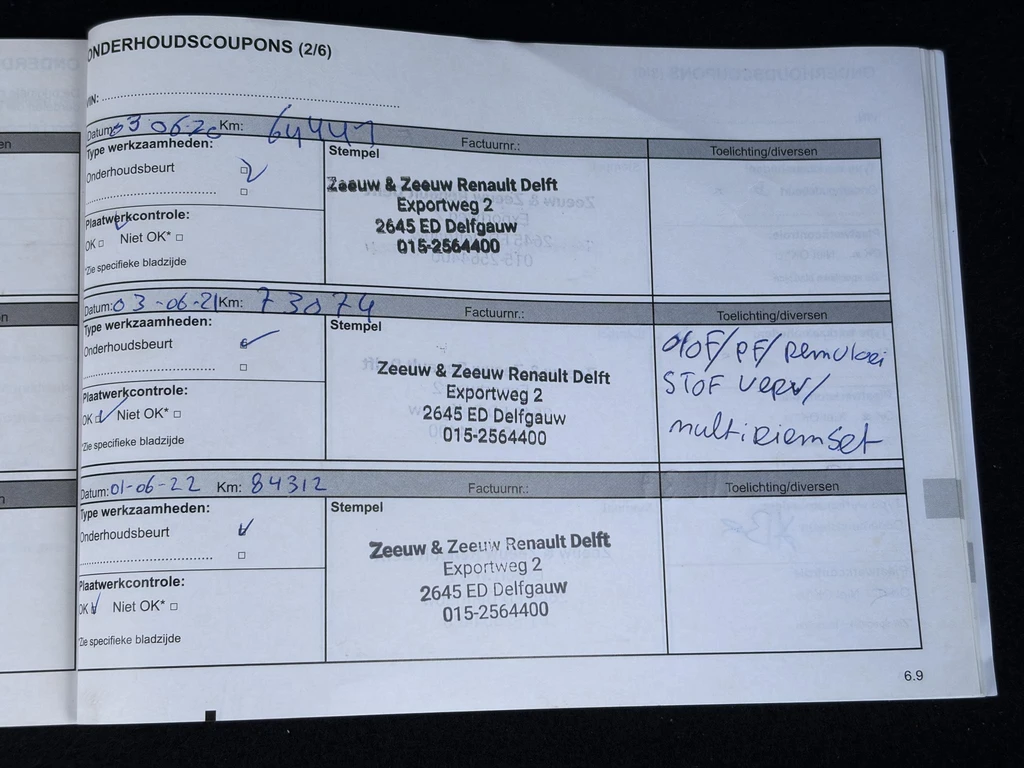 ONDERHOUDSCOUPONS (2/6)
VIN:
Datum: 03-06-20 Km: 64441 Factuurnr.: Toelichting/diversen
Type werkzaamheden:
Stempel
Onderhoudsbeurt
Zeeuw & Zeeuw Renault Delft
Exportweg 2
2645 ED Delfgauw
015-2564400
Plaatwerkcontrole:
OK Niet OK*
*Zie specifieke bladzijde
Datum: 03-06-21 Km: 73074 Factuurnr.: Toelichting/diversen
Type werkzaamheden:
Stempel
Onderhoudsbeurt
Zeeuw & Zeeuw Renault Delft
Exportweg 2
2645 ED Delfgauw
015-2564400
Plaatwerkcontrole:
OK Niet OK*
*Zie specifieke bladzijde
PF/ Remvloei
STOF verv/
multiriemset
Datum: 01-06-22 Km: 84312 Factuurnr.: Toelichting/diversen
Type werkzaamheden:
Stempel
Onderhoudsbeurt
Zeeuw & Zeeuw Renault Delft
Exportweg 2
2645 ED Delfgauw
015-2564400
Plaatwerkcontrole:
OK Niet OK*
*Zie specifieke bladzijde
6.9